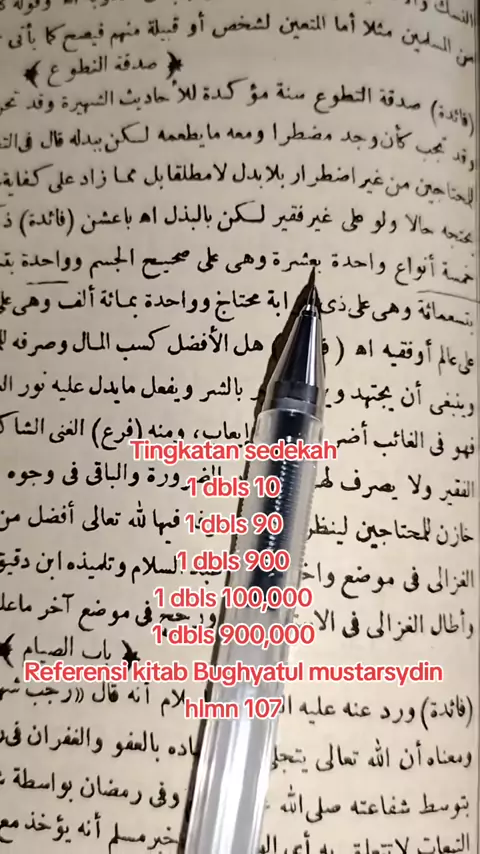 من المسلمين مثلا أما المتعين لشخص أو قبيلة منهم فيصح كما يأتى
﴿ صدقة التطوع ﴾
(فائدة) صدقة التطوع سنة مؤكدة للأحاديث الشهيرة وقد
وقد تجب كأن وجد مضطرا ومعه ما يطعمه لكن ببدله قال فى
للمحتاجين من غير اضطرار بلا بدل لا مطلقا بل مما زاد على كفاية
يحتجه حالا ولو على غير فقير لكن بالبذل اه باعشن (فائدة)
خمسة أنواع واحدة بعشرة وهى على صحيح الجسم وواحدة
بتسعمائة وهى على ذى ابة محتاج وواحدة بمائة ألف وهى
على عالم أو فقيه اه ( هل الأفضل كسب المال وصرفه
وينبغى أن يجتهد بالشر ويفعل ما يدل عليه نور
فهو فى الغائب ايعاب، ومنه (فرع) الغنى
الفقير ولا يصرف الضرورة والباقى فى وجوه
خازن للمحتاجين لينظر فيها لله تعالى أفضل من
الغزالى فى موضع السلام وتلميذه ابن دقيق
وأطال الغزالى فى فى موضع آخر
﴿ باب الصيام ﴾
(فائدة) ورد عنه عليه أنه قال «رجب
ومعناه أن الله تعالى بالعفو والغفران
بتوسط شفاعته صلى الله وفى رمضان بواسطة
مسلم أنه يؤخذ
Tingkatan sedekah
1 dbls 10
1 dbls 90
1 dbls 900
1 dbls 100,000
1 dbls 900,000
Referensi kitab Bughyatul mustarsydin
hlmn 107